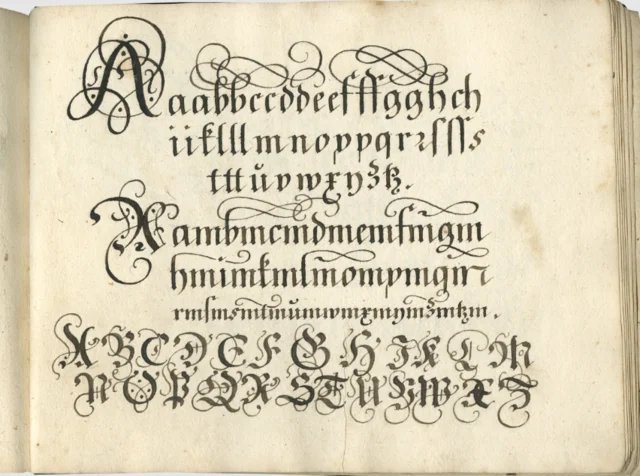 A aabbccddeefffgghch
iiklllmnoppqrꝛſſſs
tttůvwxyztz.
A ambmcmdmemfmgm
hmimkmlmompmqmꝛ
rmſmsmtmůmwmxmymzmtzm.
A B C D E F G H I K L M
N O P Q R S T U V W X Z